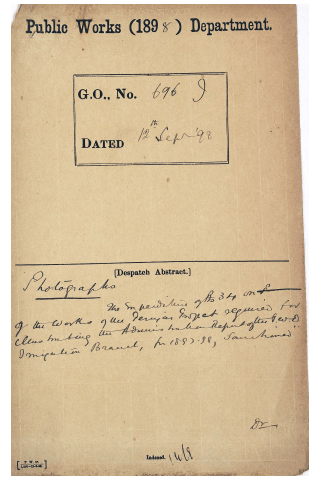 Public Works (1898) Department.
G.O., No. 696 J
DATED 12th Sepr '98
[Despatch Abstract.]
Photographs
The Expenditure of Rs 34 on
of the works of the Periyar Project required for
illustrating the Administration Report of the P.W.D
Irrigation Branch, for 1897-98, Sanctioned.
Indexed.